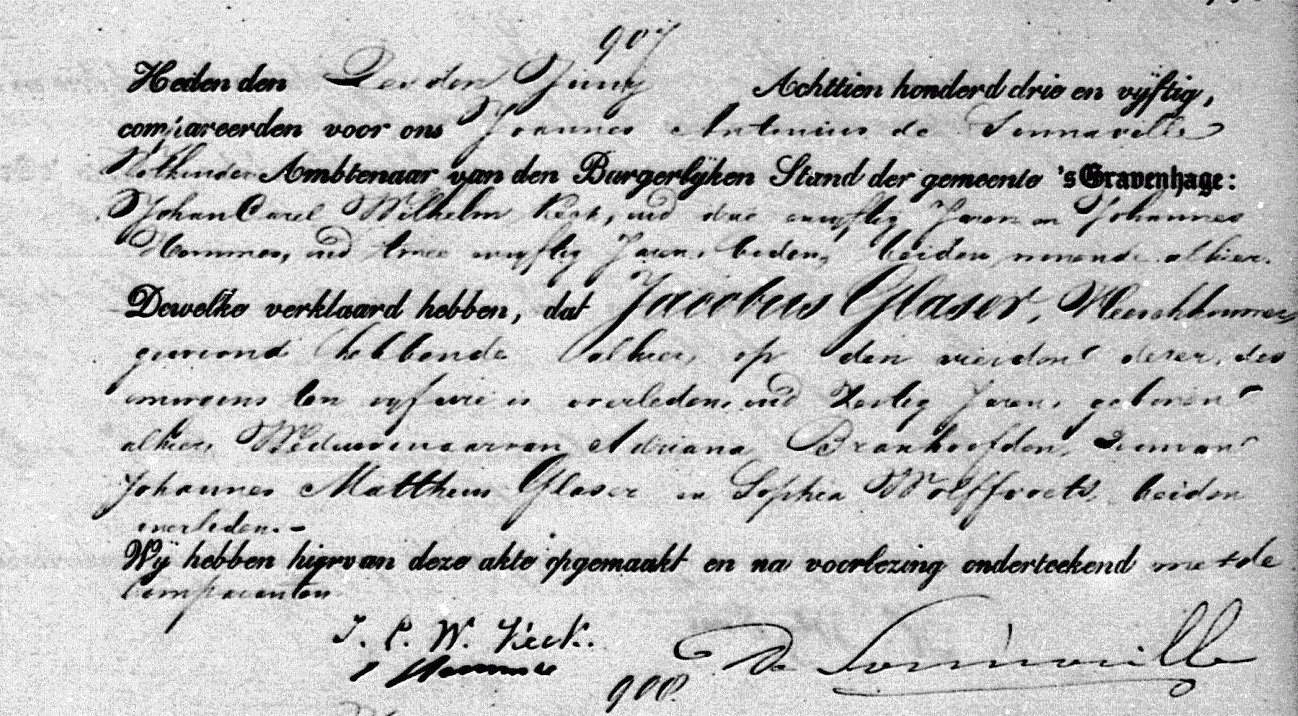 907
Heden den Zesden Juny Achttien honderd drie en vyftig,
compareerden voor ons Joannes Antonius de Sonnaville
Wethouder Ambtenaar van den Burgerlyken Stand der gemeente 's Gravenhage:
Johan Carel Wilhelm Keck, oud drie en vyftig Jaren en Johannes
Hommes, oud twee en vyftig Jaren, beiden wonende alhier.
Dewelke verklaard hebben, dat Jacobus Glaser, Vleeschhouwer
gewoond hebbende alhier, op den vierden dezer, des
morgens ten vyf ure is overleden, oud Zestig Jaren, geboren
alhier, Weduwenaar van Adriana, zoon van
Johannes Mattheus Glaser en Sophia Wolffroets, beiden
overleden.-
Wij hebben hiervan deze akte opgemaakt en na voorlezing onderteekend met de
Comparanten
J. C. W. Keck.
de Sonnaville
908.